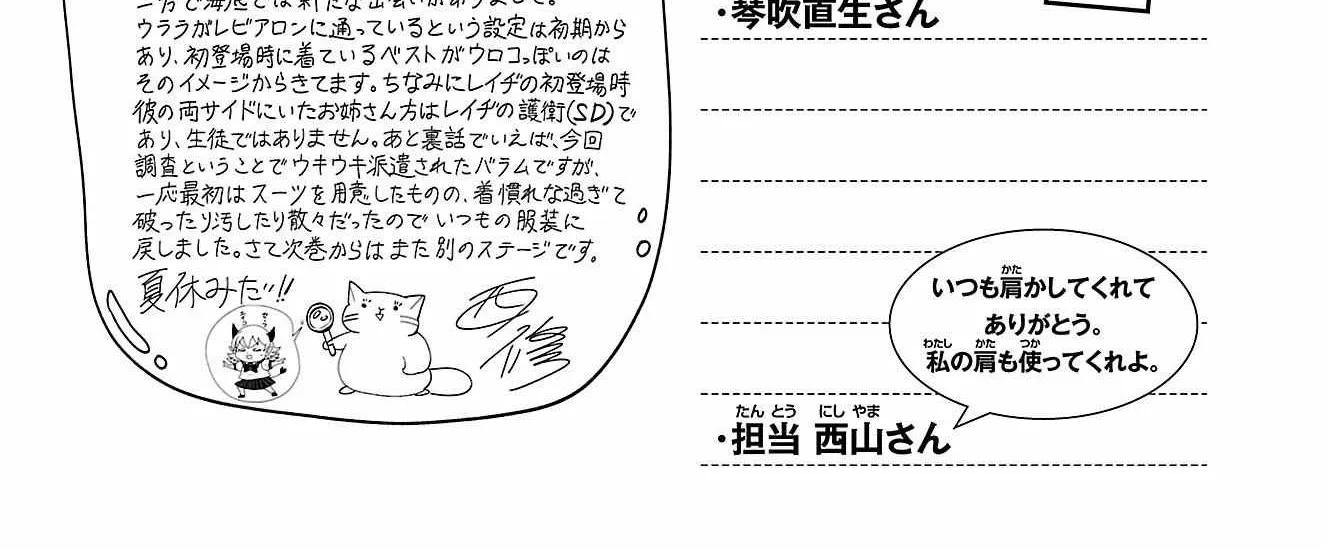 一方で海底では新たな出会いがありまして。
ウララがレビアロンに通っているという設定は初期から
あり、初登場時に着ているベストがウロコっぽいのは
そのイメージからきてます。ちなみにレイヂの初登場時
彼の両サイドにいたお姉さん方はレイヂの護衛(SD)で
あり、生徒ではありません。あと裏話でいえば、今回
調査ということでウキウキ派遣されたバラムですが、
一応最初はスーツを用意したものの、着慣れな過ぎて
破ったり汚したり散々だったのでいつもの服装に
戻しました。さて次巻からはまた別のステージです。
夏休みだッ!!
・琴吹直生さん
かた
いつも肩かしてくれて
ありがとう。
わたし かた つか
私の肩も使ってくれよ。
たん とう にし やま
・担当 西山さん